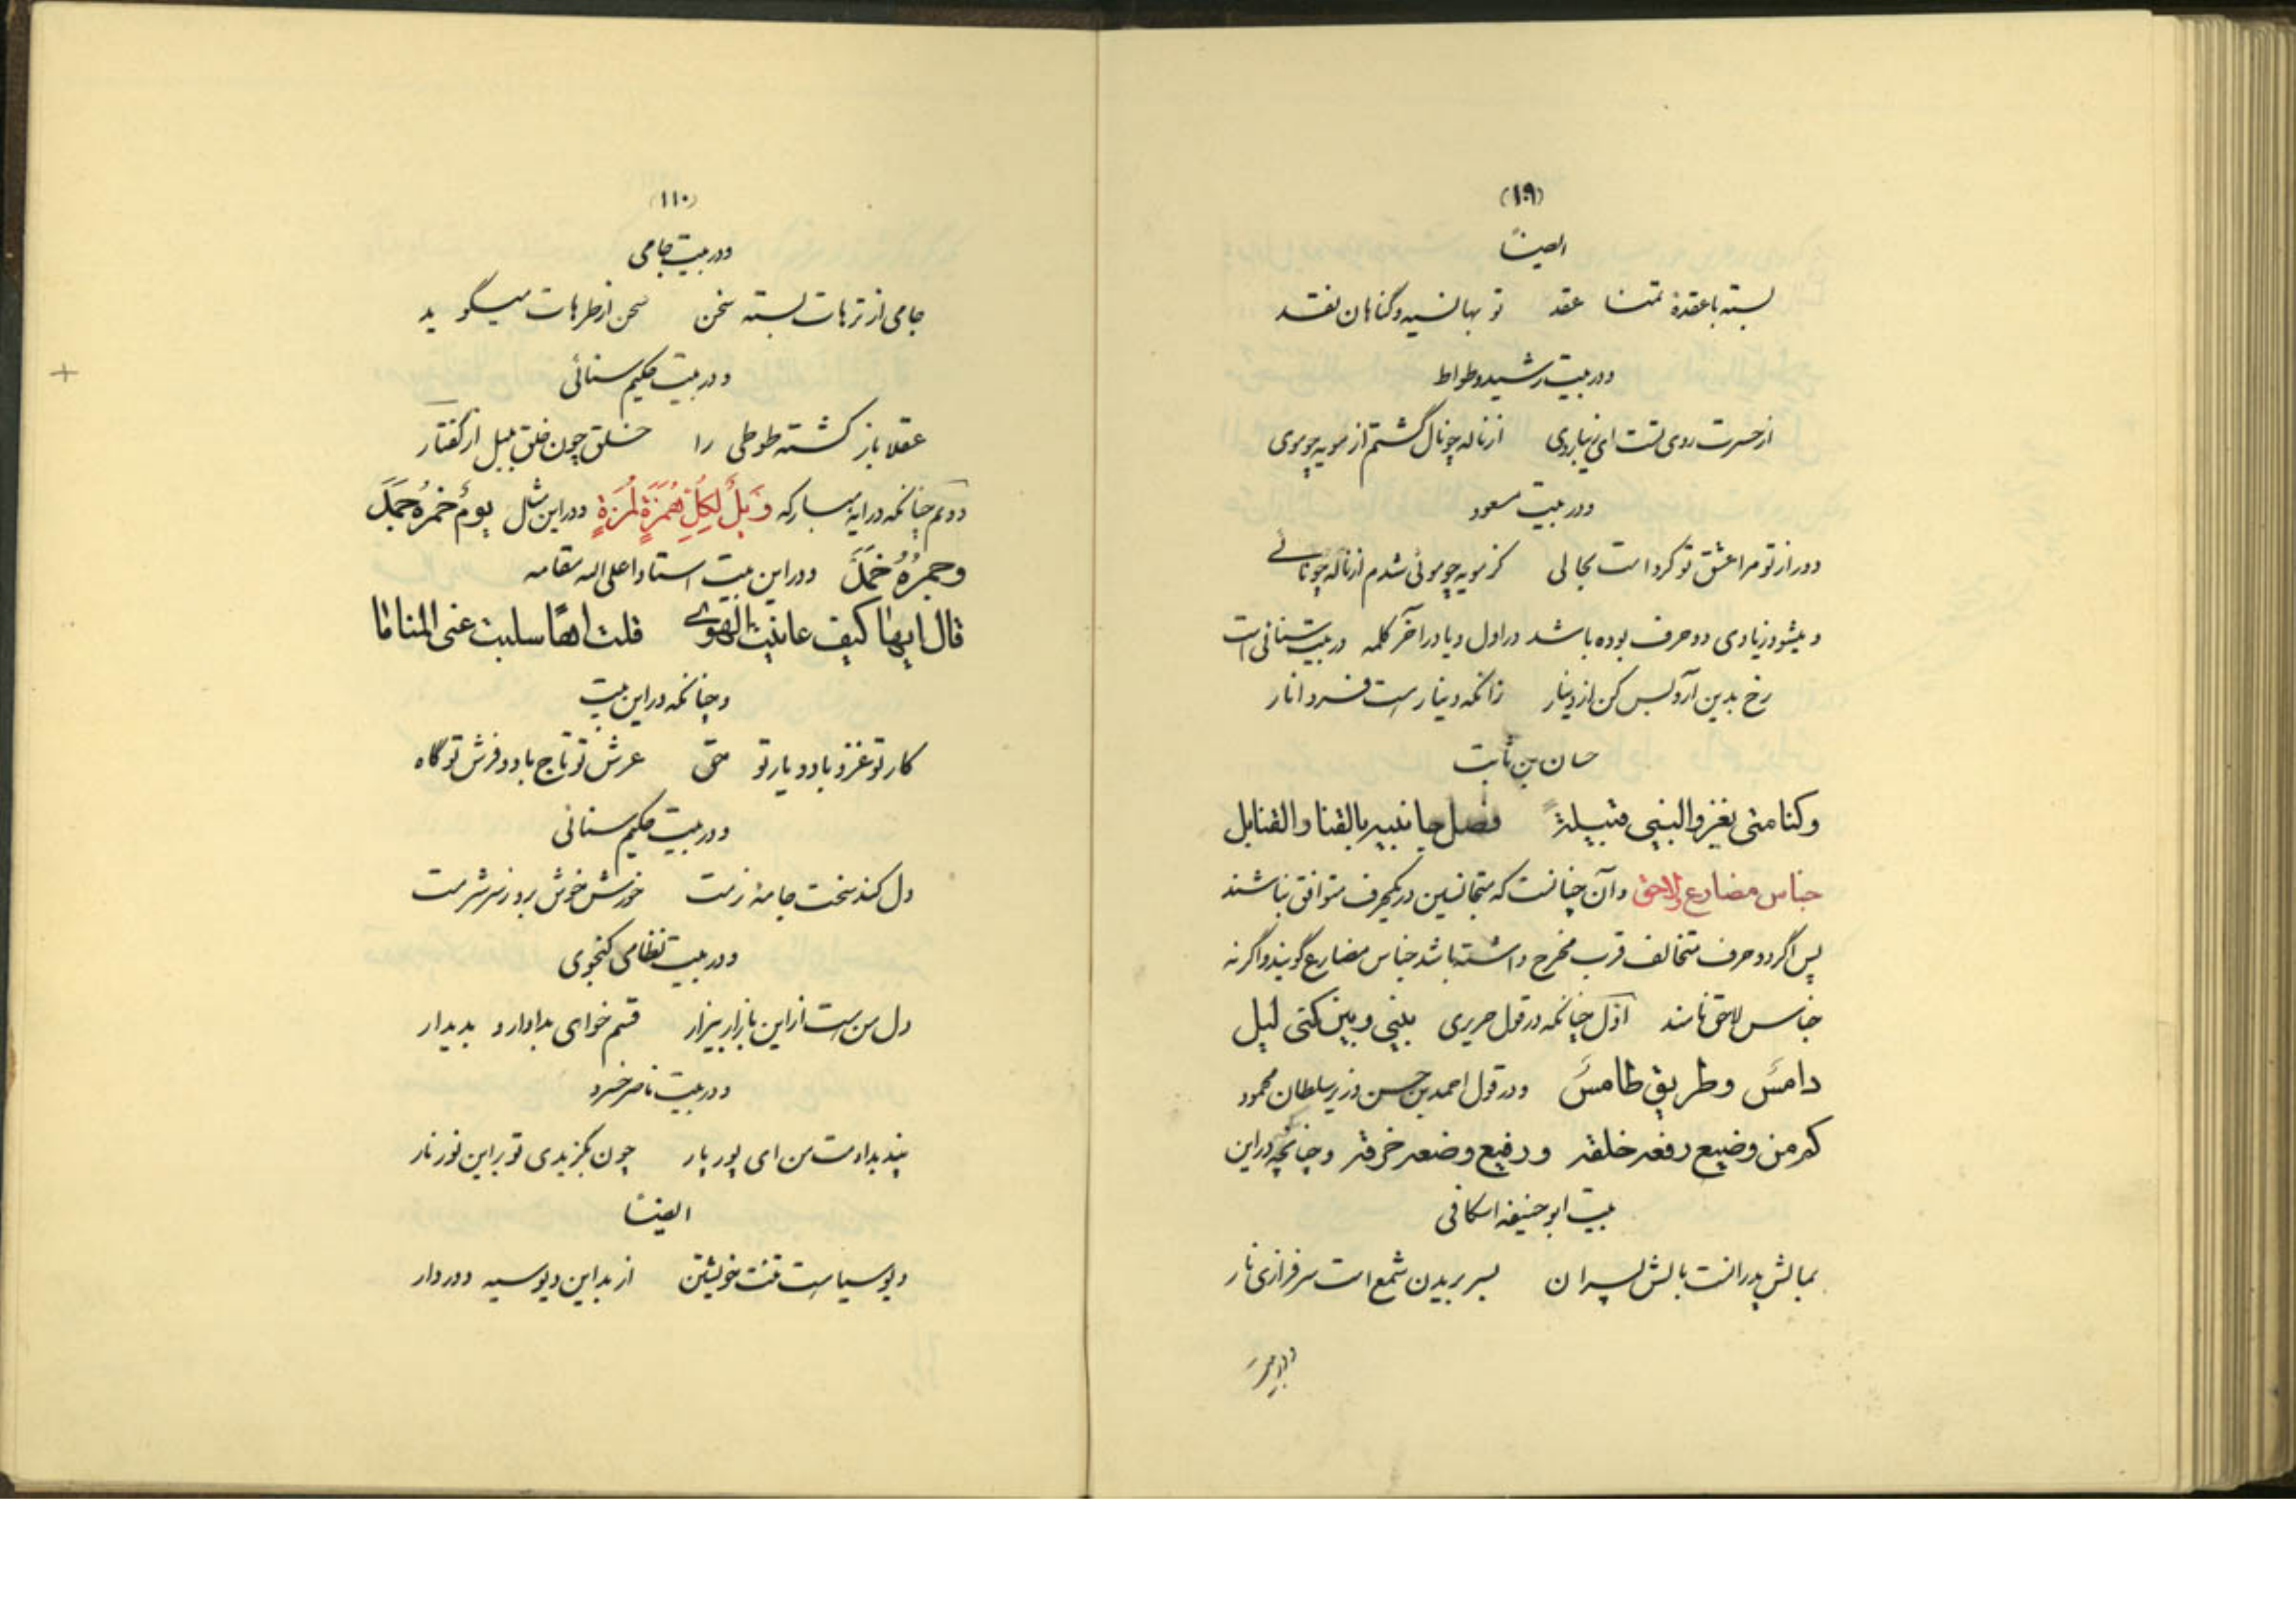 (۱۰۹)
ایضاً
بسته با عقدهٔ تمنا عقد توبها نسیه و گناهان نقد
و در بیت رشید وطواط
از حسرت روی تست ای زیباروی از ناله چو نال گشتم از مویه چو موی
و در بیت مسعود
دور از تو مرا عشق تو کرد است بحالی کز مویه چو موئی شدم از ناله چو نالے
و میشود زیادی دو حرف بوده باشد در اول و یا در آخر کلمه در بیت سنائی است
رخ بدین آر و بس کن از دینار زانکه دینار است فرد انار
حسان بن ثابت
وکنا متی یغزو النبی قبیلة فصل جانبیه بالقنا والقنابل
جناس مضارع ولاحق و آن چنانست که متجانسین در یکحرف متوافق نباشند
پس اگر دو حرف متخالف قرب مخرج داشته باشد جناس مضارع گویند و اگر نه
جناس لاحق نامند اوّل چنانکه در قول حریری بینی و بین کنی لیل
دامسَ وطریق طامسَ و در قول احمد بن حسن وزیر سلطان محمود
کم من وضیع رفعه خلقه و رفیع وضعه خرقه و چنانچه در این
بیت ابو حنیفه اسکافی
بمالش پدرانست بالش پسران بسر بریدن شمع است سرفرازی نار
و در بیت
(۱۱۰)
و در بیت جامی
جامی از ترهات بسته سخن سخن از طرهات میگوید
و در بیت حکیم سنائی
عقلا باز کشته طوطی را خلق چون خلق بلبل از گفتار
دویّم چنانکه در ایه مبارکه وَیلٌ لِکُلِّ هُمَزَةٍ لُمَزَةٍ و در این مثل یومٌ خمرُهُ جَمَدَ
وجمرُهُ خَمَدَ و در این بیت استاد اعلی اله مقامه
قال ایها کیف عاینت الهوی قلت اهًا سلبت عنی المناما
و چنانکه در این بیت
کار تو غزو باد و یار تو متی عرش تو تاج باد و فرش تو گاه
و در بیت حکیم سنائی
دل کند سخت جامهٔ نرمت خورش خوش برد ز سر شرمت
و در بیت نظامی گنجوی
دل من هست از این بازار بیزار قسم خواهی بدادار و بدیدار
و در بیت ناصر خسرو
پند بدادمت من ای پور پار چون بگزیدی تو بر این نور نار
ایضاً
دیو سیاست تنت خویشتن از بد این دیو سیه دور دار